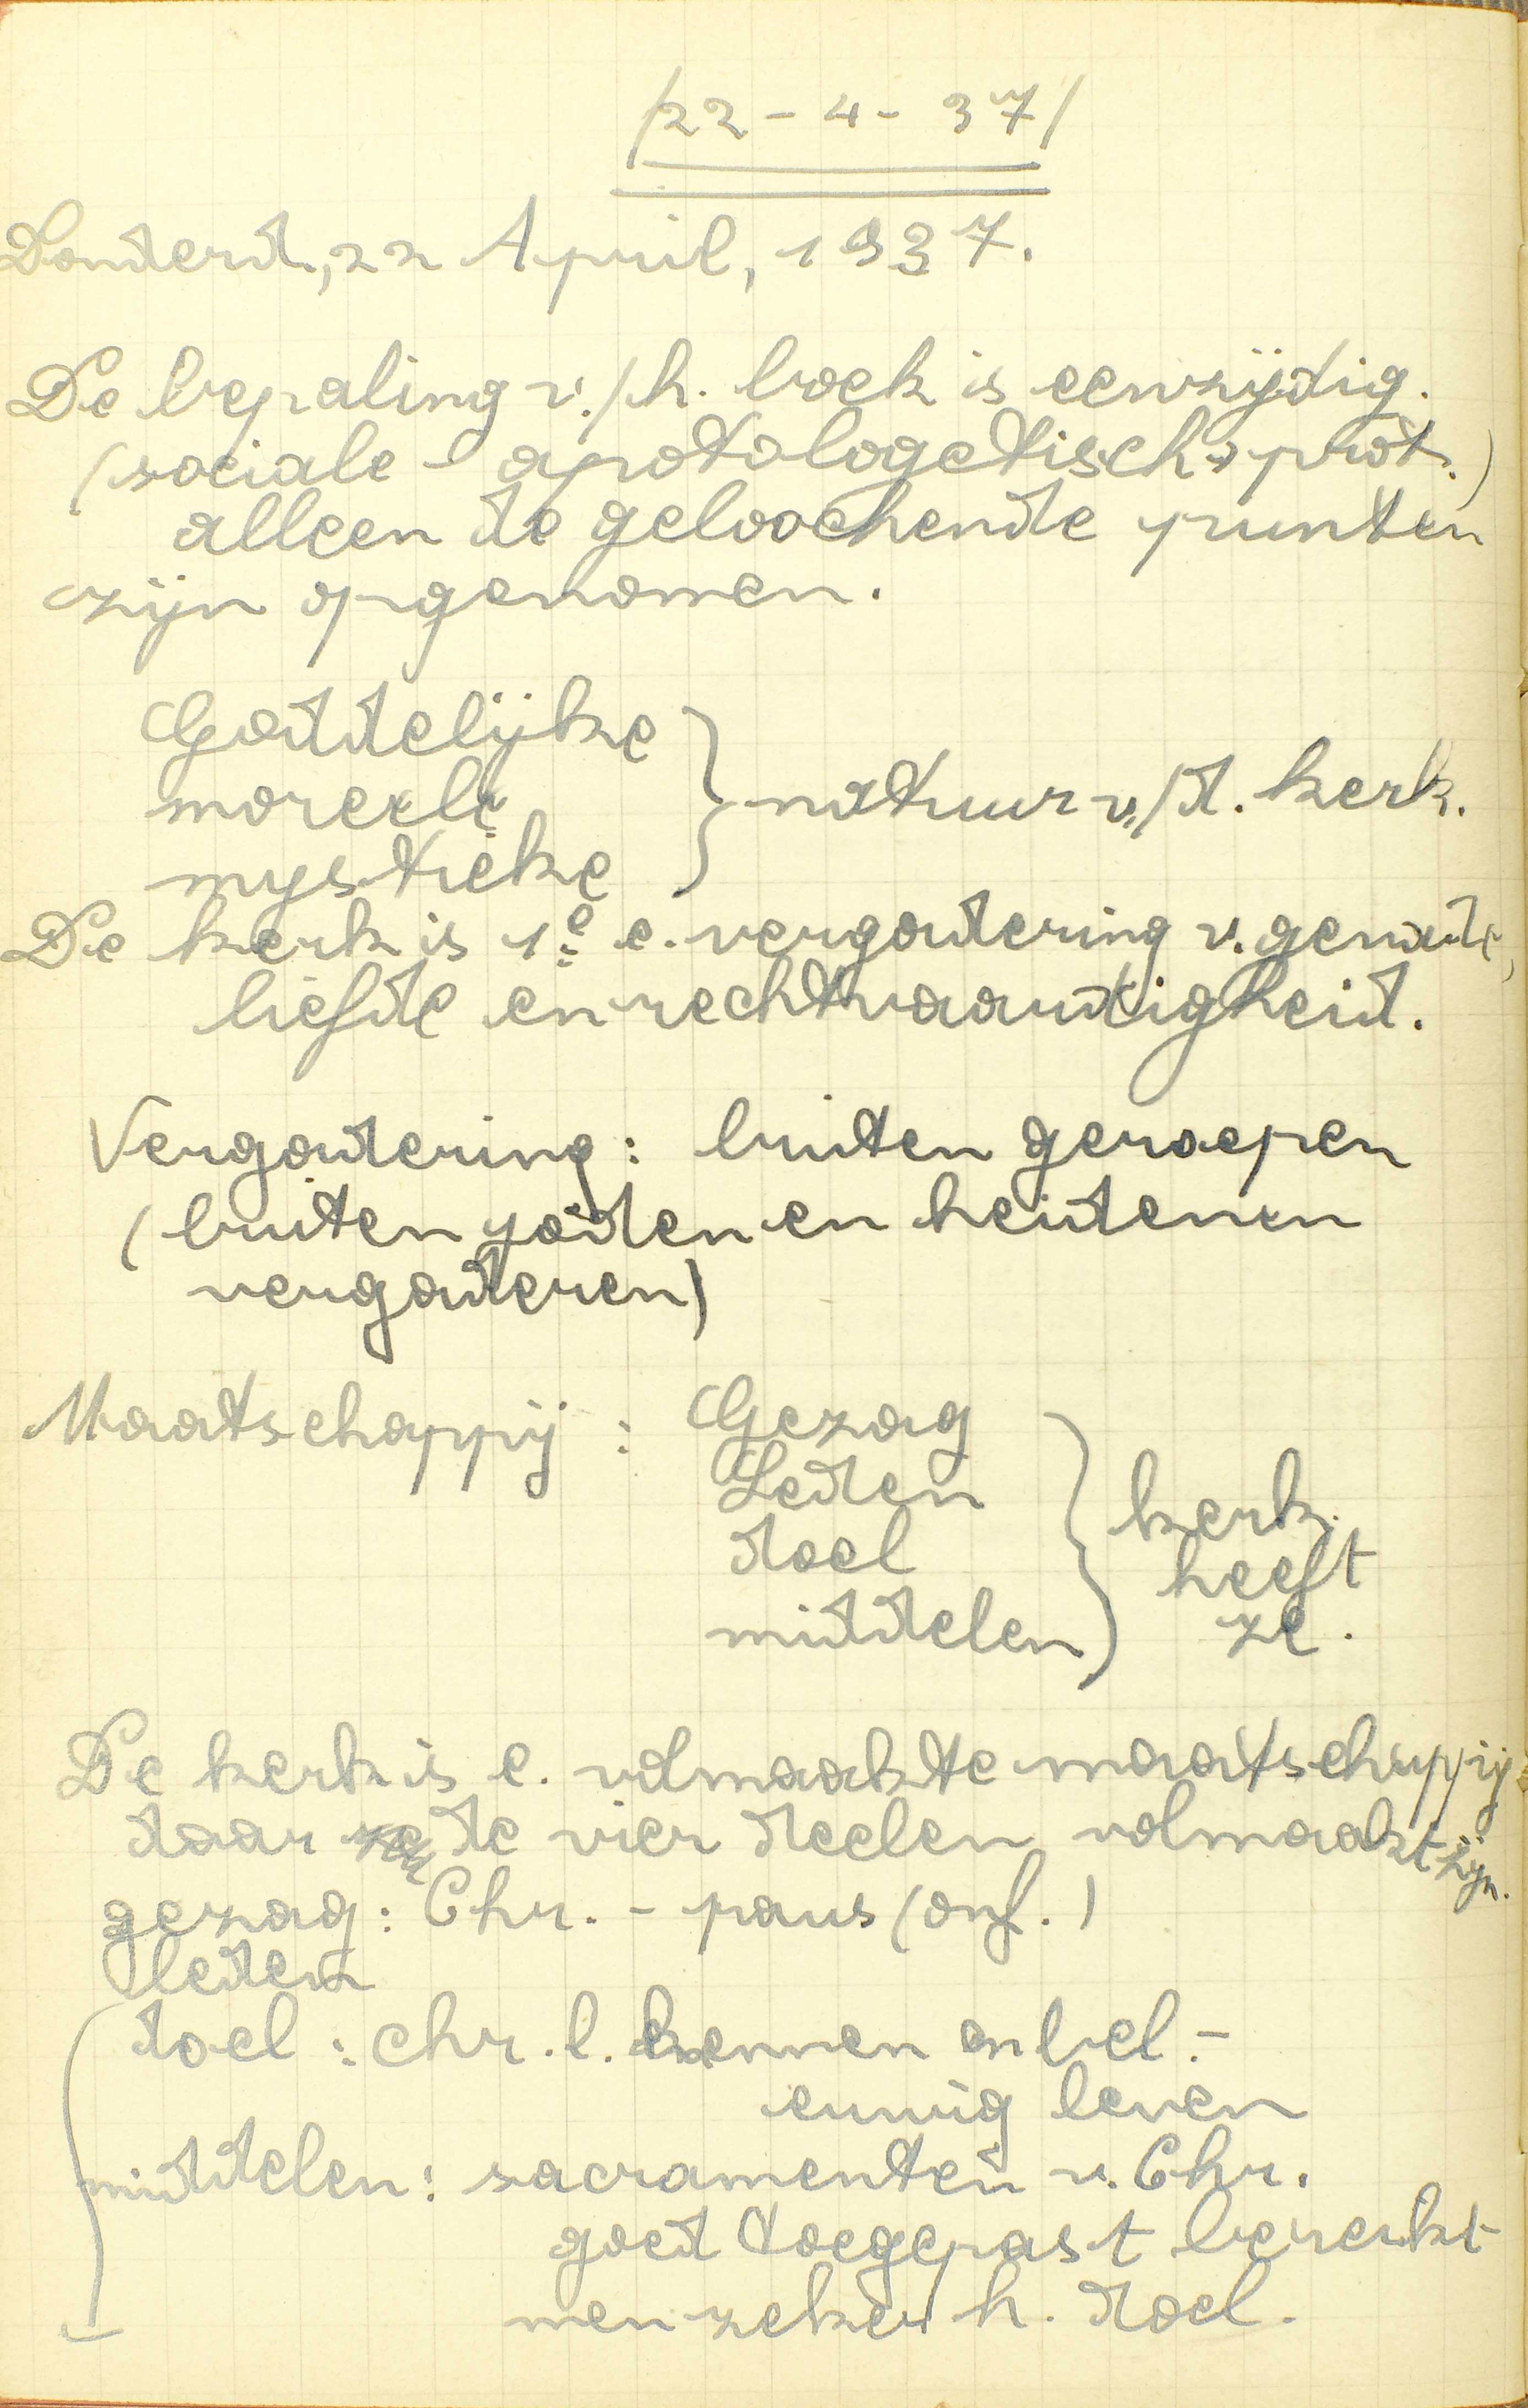 /22-4-37/
Donderd., 22 April, 1937.
De bepaling v./h. boek is eenzijdig.
(sociale - apotologetisch → prot.)
alleen de geloochende punten
zijn opgenomen.
Goddelijke
moreele } natuur v./d. kerk.
mystieke
De kerk is 1e e. vergadering v. genade,
liefde en rechtvaardigheid.
Vergadering: buiten geroepen
(buiten joden en heidenen
vergaderen)
Maatschappij : Gezag
Leden
doel
middelen } kerk
heeft
ze.
De kerk is e. volmaakte maatschappij
daar de vier deelen volmaakt zijn.
gezag: Chr. - paus (onf.)
leden
doel : chr. l. kennen en bel. -
eeuwig leven
middelen: sacramenten v. Chr.
goed toegepast bewerkt
men zeker h. doel.